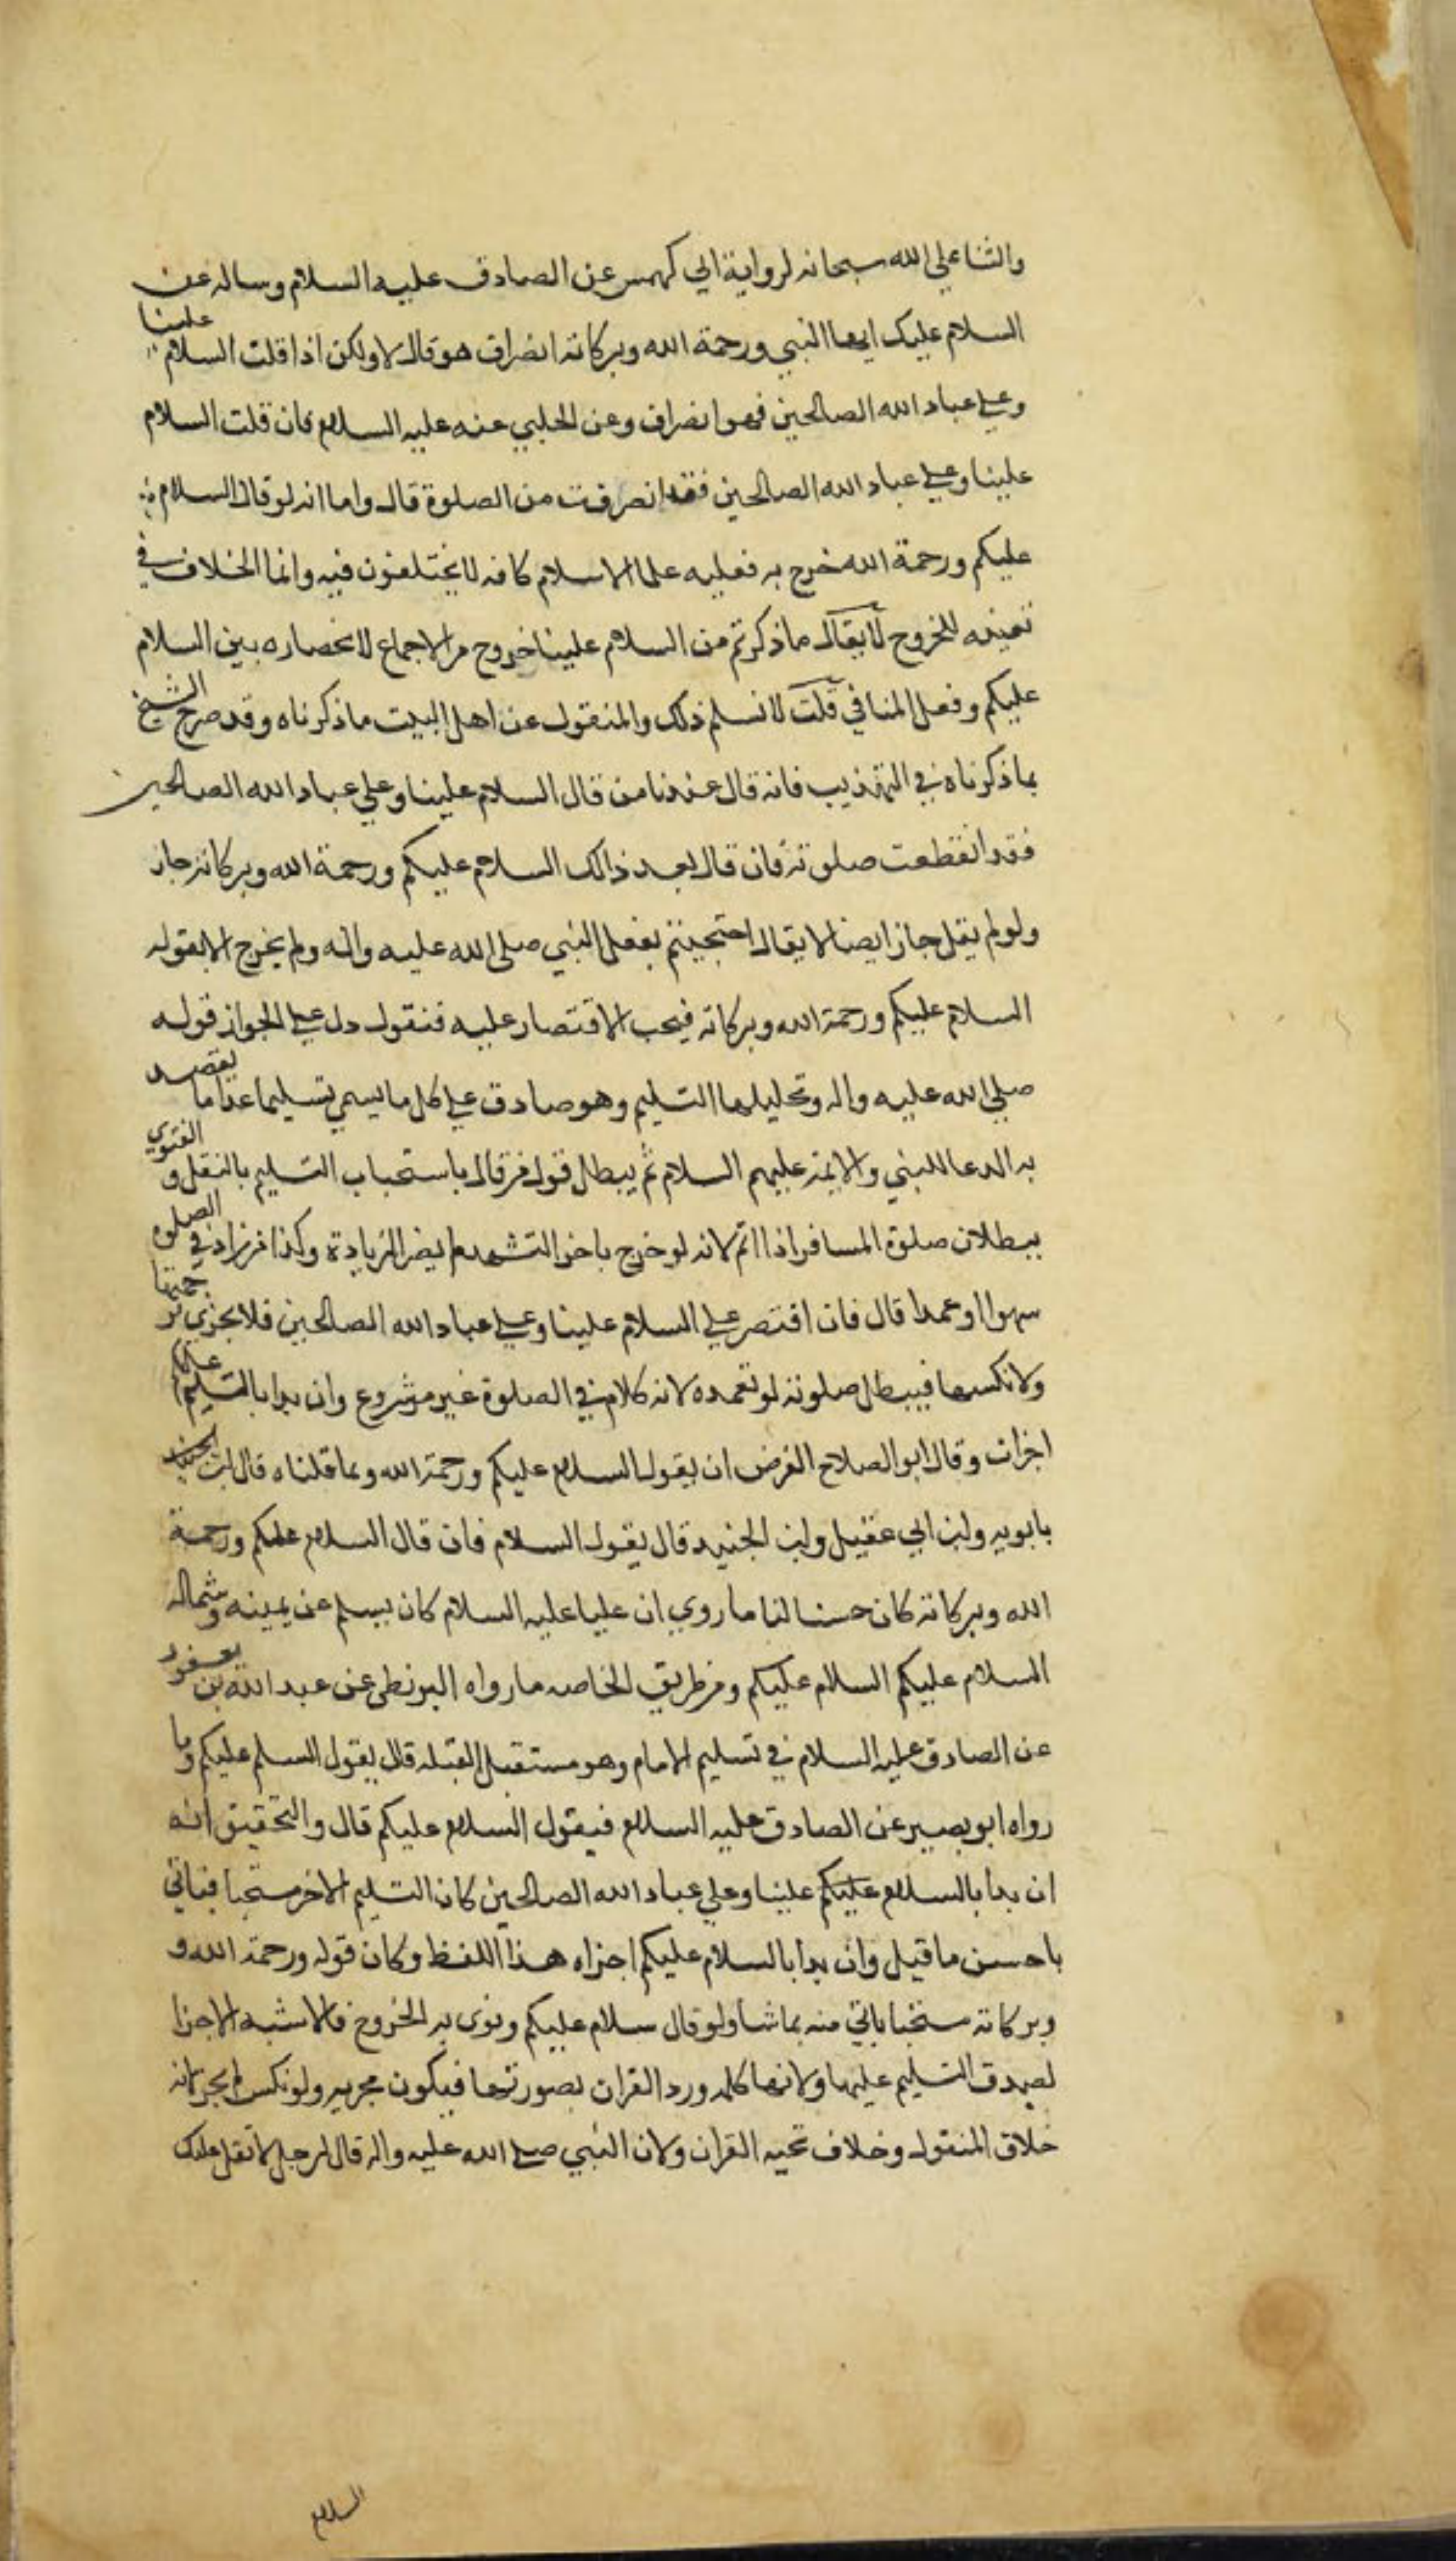 والثنا علي الله سبحانه لرواية ابي كهمس عن الصادق عليه السلام وساله عن
السلام عليك ايها النبي ورحمة الله وبركاته انصراف هو قال لا ولكن اذا قلت السلام علينا
وعلي عباد الله الصالحين فهو انصراف وعن الحلبي عنه عليه السلام فان قلت السلام
علينا وعلي عباد الله الصالحين فقد انصرفت من الصلوة قال واما انه لو قال السلام
عليكم ورحمة الله خرج به فعليه علما الاسلام كافه لا يختلفون فيه وانما الخلاف في
تعينه للخروج لا يقال ما ذكرتم من السلام علينا خروج من الاجماع لانحصاره بين السلام
عليكم وفعل المنافي قلت لا نسلم ذلك والمنقول عن اهل البيت ما ذكرناه وقد صرح الشيخ
بما ذكرناه في التهذيب فانه قال عندنا من قال السلام علينا وعلي عباد الله الصالحين
فقد انقطعت صلوته فان قال بعد ذالك السلام عليكم ورحمة الله وبركاته جاز
ولو لم يقل جاز ايضا لا يقال احتججتم بفعل النبي صلي الله عليه واله ولم يخرج الا بقوله
السلام عليكم ورحمة الله وبركاته فيجب الاقتصار عليه فنقول دل علي الجواز قوله
صلي الله عليه واله وتحليلها التسليم وهو صادق علي كل ما يسمي تسليما عدا ما يقصد
به الدعا للنبي والايمة عليهم السلام ثم يبطل قول من قال باستحباب التسليم بالنقل و الفتوي
ببطلان صلوة المسافر اذا اتم لانه لو خرج باخر التشهد لم يضر الزيادة وكذا من زاد في الصلوه
سهوا او عمدا قال فان اقتصر علي السلام علينا وعلي عباد الله الصالحين فلا يجزي ترجمتها
ولا نكسها فيبطل صلوته لو تعمده لانه كلام في الصلوة غير مشروع وان بدا بالتسليم علينا
اجزات وقال ابو الصلاح الفرض ان يقول السلام عليكم ورحمة الله وبما قلناه قال ابن
بابويه وابن ابي عقيل وابن الجنيد قال يقول السلام فان قال السلام عليكم ورحمة
الله وبركاته كان حسنا لنا ما روي ان عليا عليه السلام كان يسلم عن يمينه وشماله
السلام عليكم السلام عليكم ومن طريق الخاصه ما رواه البزنطي عن عبد الله بن يعفور
عن الصادق عليه السلام في تسليم الامام وهو مستقبل القبله قال يقول السلم عليكم وما
رواه ابو بصير عن الصادق عليه السلام فيقول السلام عليكم قال والتحقيق انه
ان بدا بالسلام عليكم علينا وعلي عباد الله الصالحين كان التسليم الاخر مستحبا فياتي
باحسن ما قيل وان بدا بالسلام عليكم اجزاه هذا اللفظ وكان قوله ورحمة الله و
وبركاته مستحبا ياتي منه بما شا ولو قال سلام عليكم ونوي به الخروج فالاشبه الاجزا
لصدق التسليم عليها ولانها كلمه ورد القران بصورتها فيكون مجزيه ولو نكس لم يجز لانه
خلاف المنقول وخلاف تحيه القران ولان النبي صلي الله عليه واله قال لرجل لا تقل عليك
السلام